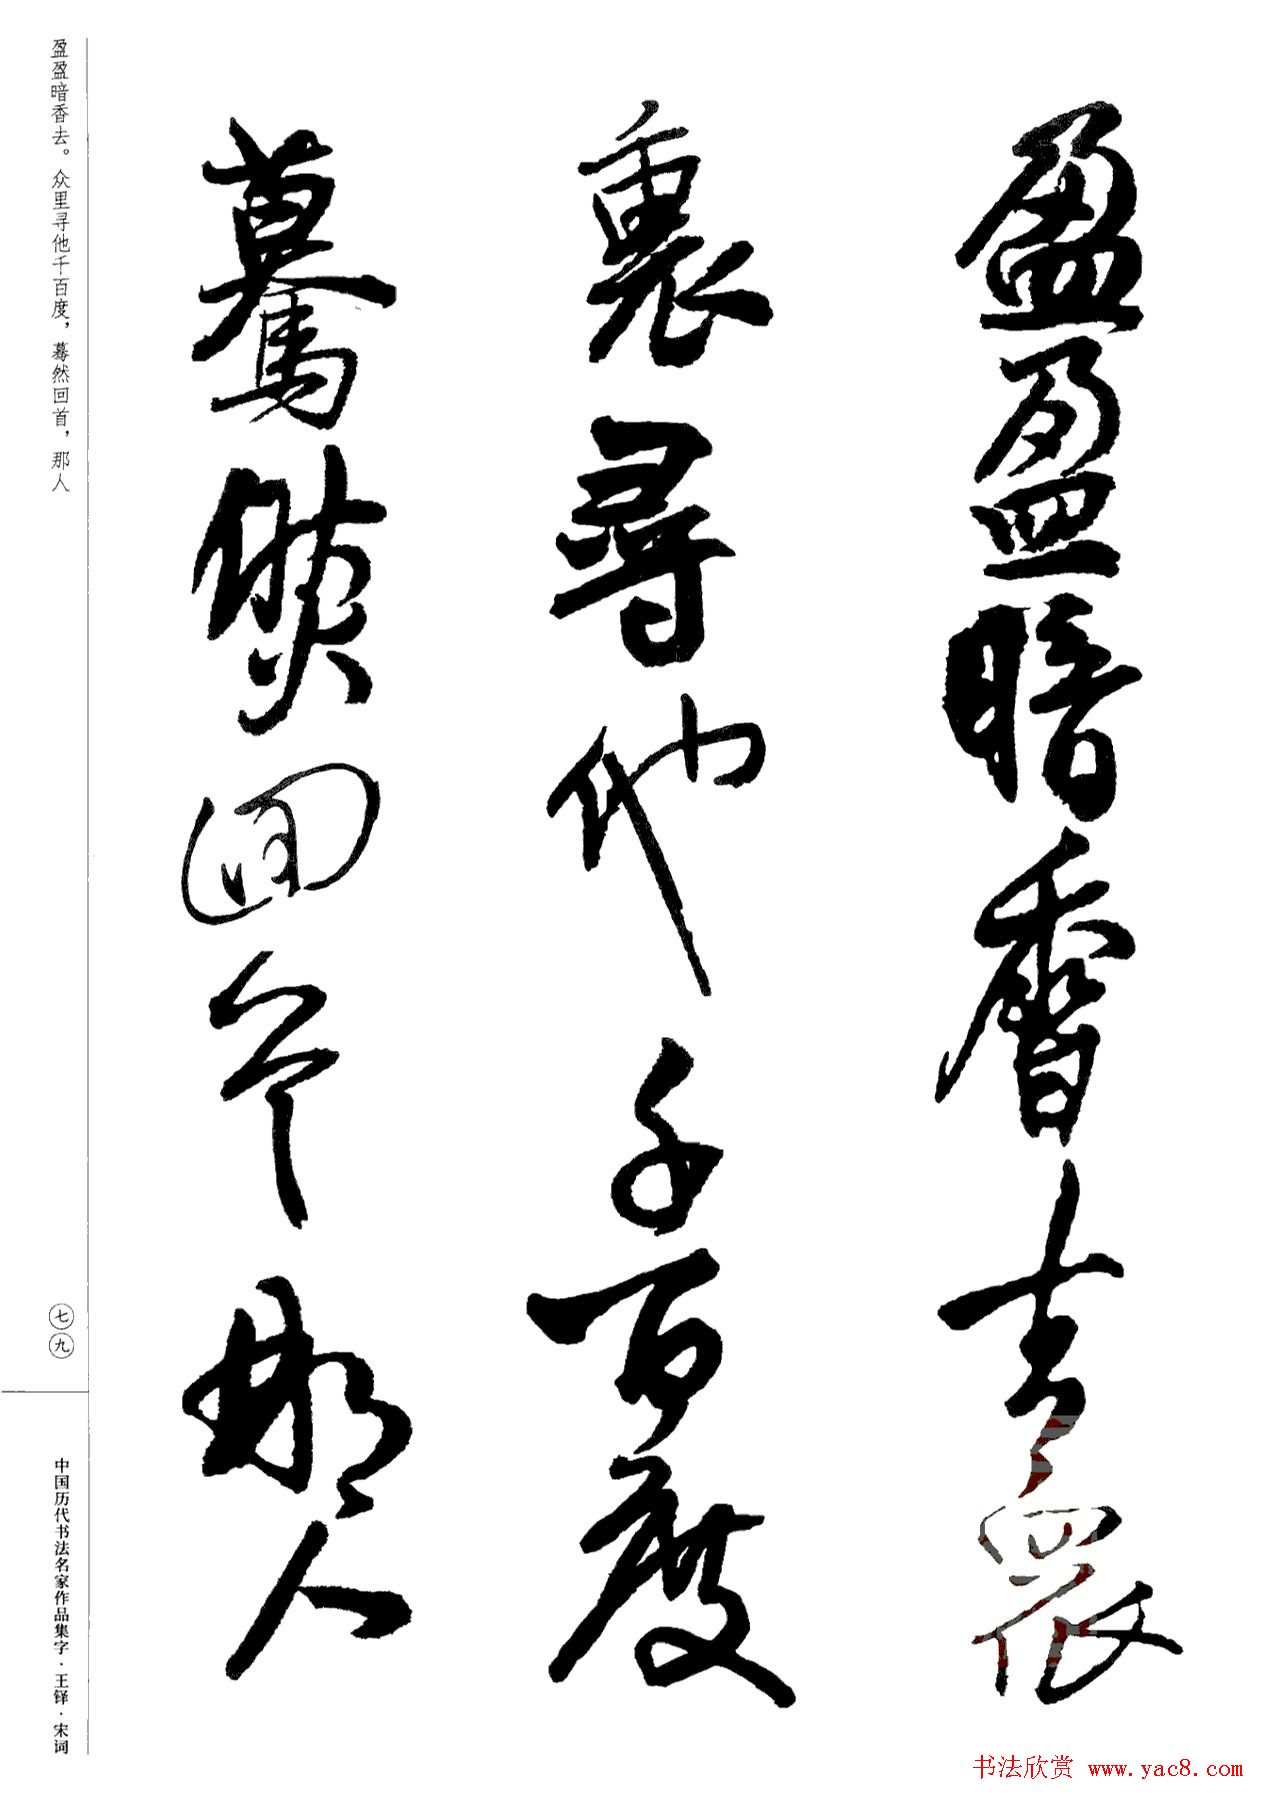 盈盈暗香去衆
裏尋他千百度
驀然回首那人
盈盈暗香去。众里寻他千百度，蓦然回首，那人
七九
中国历代书法名家作品集字·王铎·宋词
书法欣赏 www.yac8.com